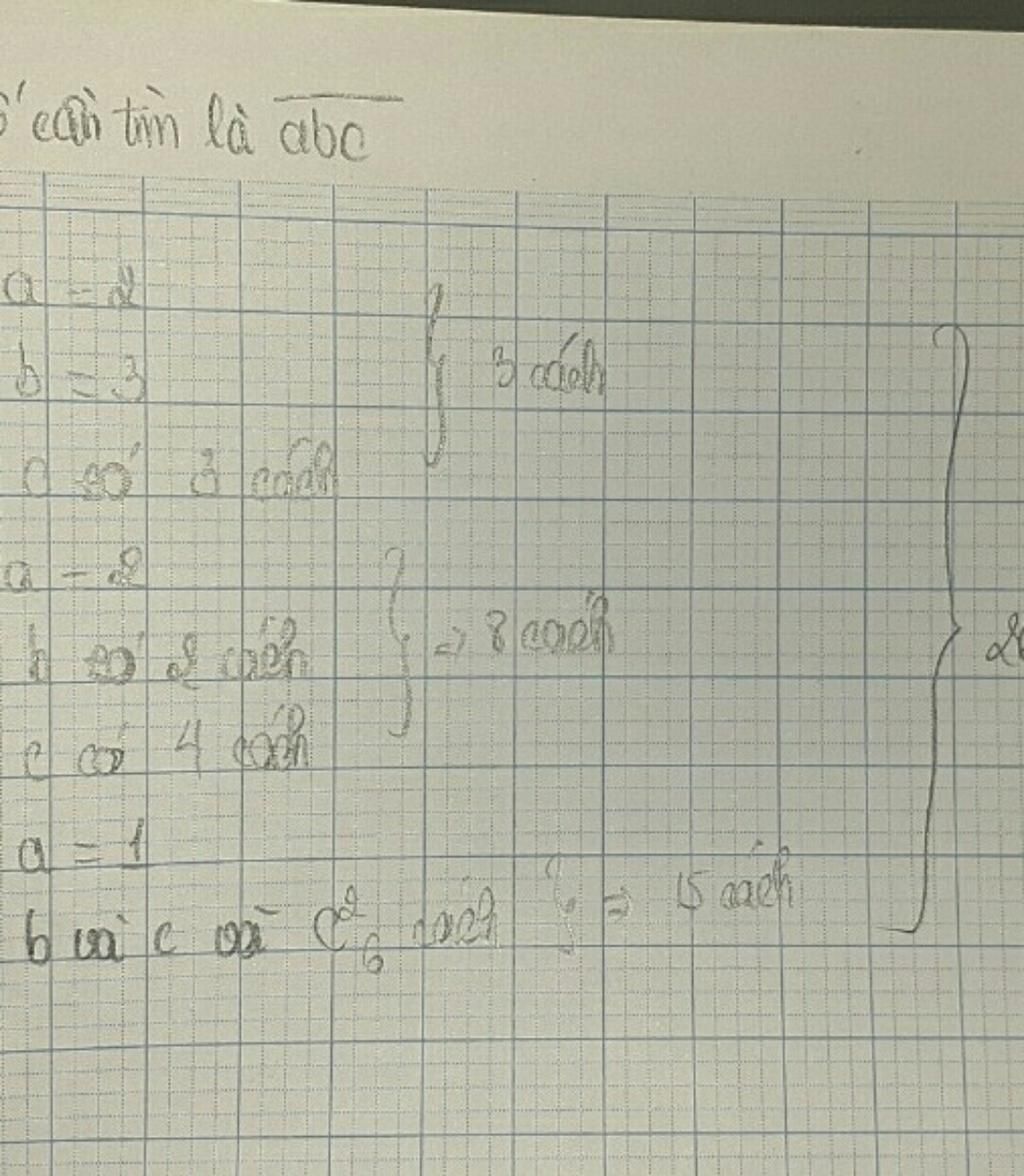 cần tìm là abc
a = 2
b = 3
3 cách
c có 3 cách
a = 2
b có 2 cách
=> 8 cách
c có 4 cách
a = 1
b và c có C²₆ cách => 15 cách